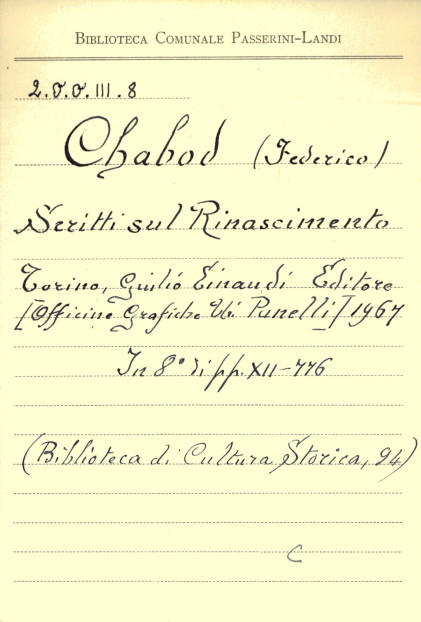 BIBLIOTECA COMUNALE PASSERINI-LANDI
2.O.O.III.8
Chabod (Federico)
Scritti sul Rinascimento
Torino, Giulio Einaudi Editore
[Officine Grafiche U. Panelli] 1967
In 8° di pp. XII-776
(Biblioteca di Cultura Storica, 94)
C